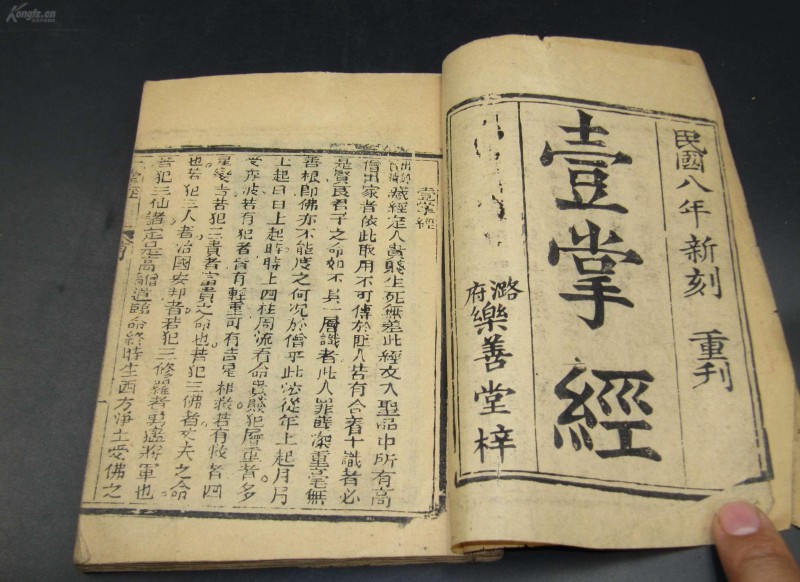 Kongfz.cn
民國八年新刻 重刊
壹掌經
潞府樂善堂梓
壹掌經
藏經定人貴賤生死無差此經攵入聖品中所有高
僧出家者依此取用不可傳於匪人皆有合看十識者必
是賢良君子之命如不具一層識者此人罪孽深重毫無
善根即佛亦不能度之何況於僧乎此法從年上起月月
上起日日上起時時上四柱周流看命貴賤犯層重者多
受奔波若有犯者自有輕重可有吉星相救若有恢者四
星變吉若犯三貴者富貴之命也若犯三佛者丈夫之命
也若犯三人者治國安邦者若犯三修羅者男爲將軍也
若犯三仙諸定是高僧道臨命終時生西方淨土受佛之